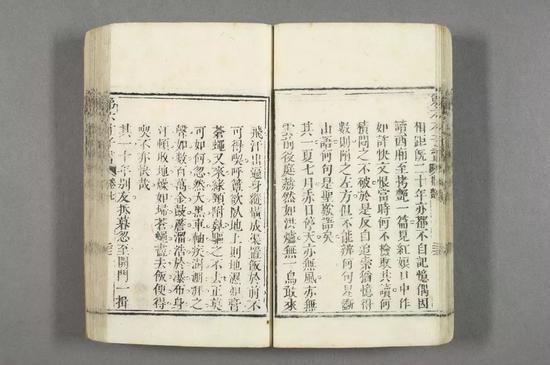 相距既二十年亦都不自記憶偶因
讀西廂至拷艷一篇見紅娘口中作
如許快文恨當時何不檢取共讀何
積悶之不破於是反自追索猶憶得
數則附之左方但不能辨何句是斵
山語何句是聖歎語矣
其一夏七月赤日停天亦無風亦無
雲前後庭赫然如洪爐無一鳥敢來
飛汗出遍身縱橫成渠置飯於前不
可得喫呼簟欲臥地上則地濕如膏
蒼蠅又來緣頸附鼻驅之不去正莫
可如何忽然大黑車軸疾澍澎湃之
聲如數百萬金鼓簷溜浩於瀑布身
汗頓收地燥如掃蒼蠅盡去飯便得
喫不亦快哉
其一十年別友抵暮忽至開門一揖
卷七